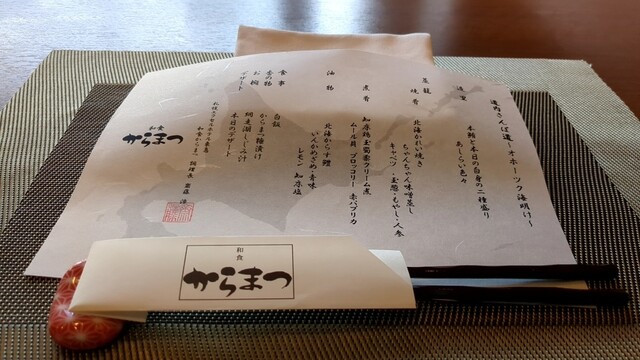 道内さんぽ道～オホーツク海明け～
本鮪と本日の白身の二種盛り
あしらい色々
蒸籠
焼肴
北海かれい焼き
ちゃんちゃん味噌蒸し
キャベツ・玉葱・もやし・人参
煮肴
知床鶏玉蜀黍クリーム煮
ムール貝 ブロッコリー 赤パプリカ
油物
北海からす鰈
いんかのめざめ・青味
レモン 知床塩
食事
香の物
お椀
デザート
白飯
からまつ糠漬け
網走湖しじみ汁
本日のデザート
和食
からまつ
和食からまつ 調理長
和食
からまつ